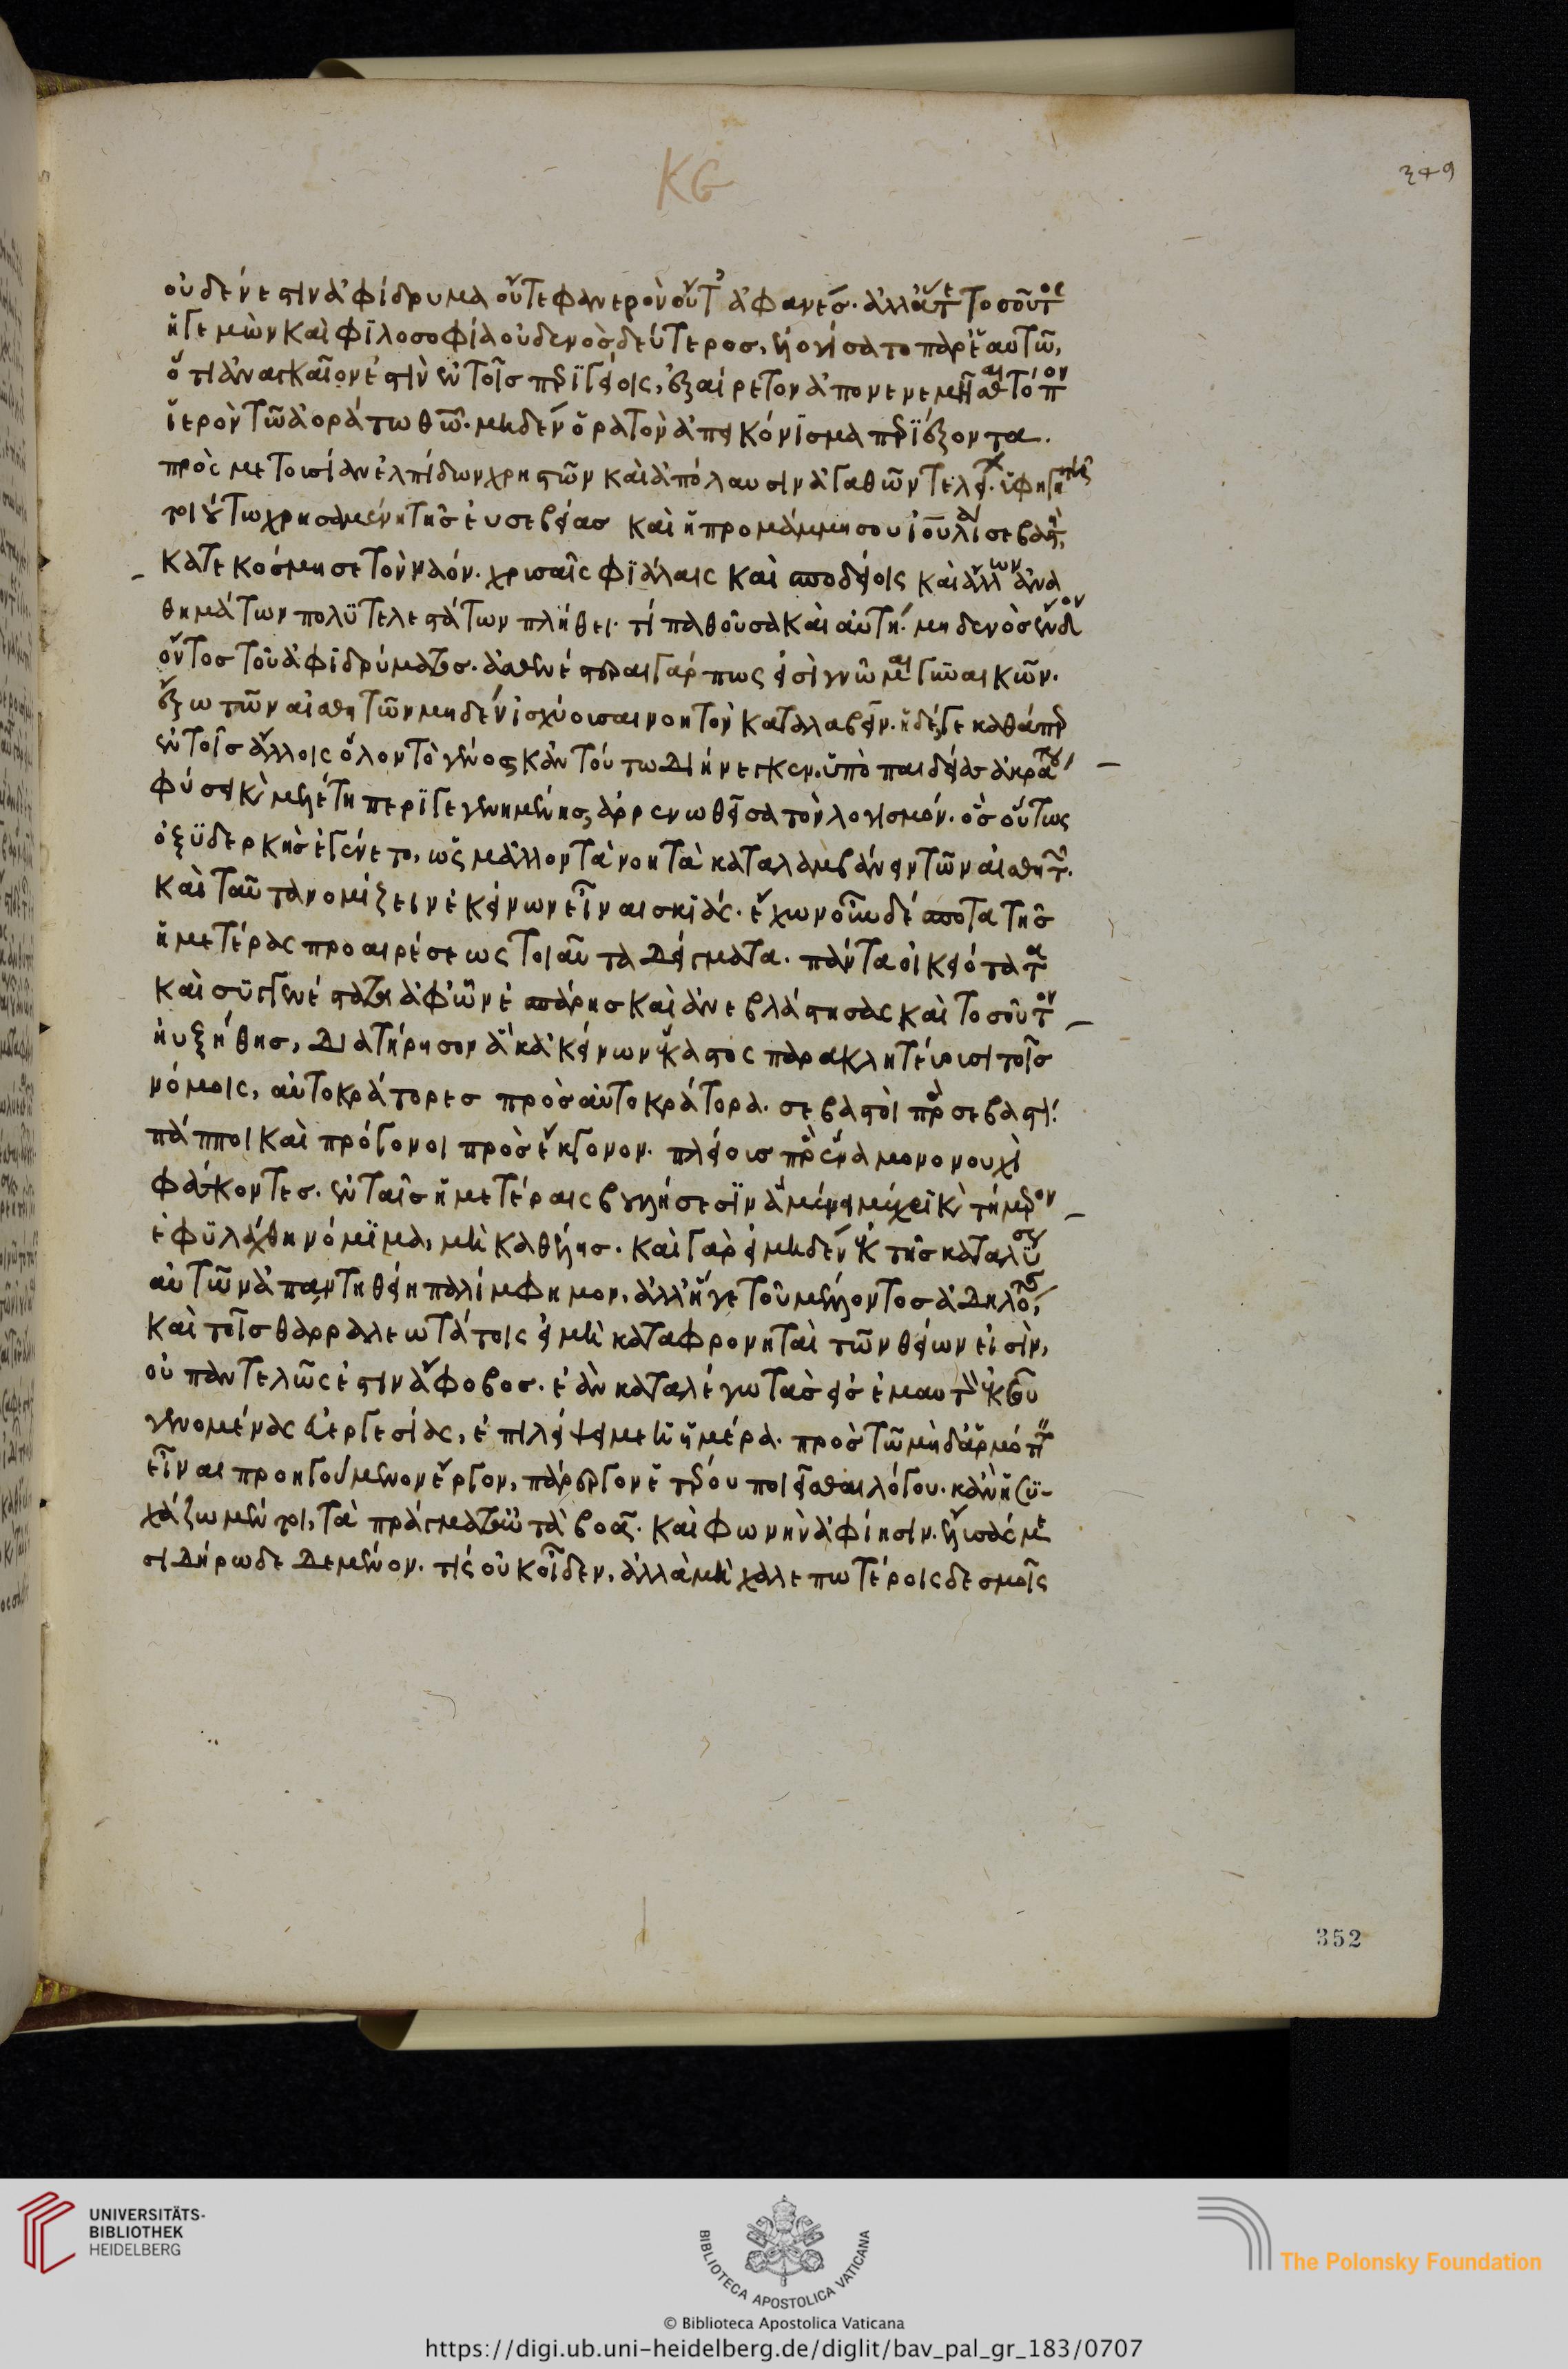 KG
349
οὐδέν ἐστιν ἀφίδρυμα οὔτε φανερὸν οὔτ' ἀφανέσ· ἀλλ' αὔτε τοσοῦτος
ἡγεμὼν καὶ φϊλοσοφία οὐδενὸσ δεύτεροσ, ἐλογίσατο παρ' ἑαυτῶ,
ὅτι ἀναγκαῖον ἐστὶν ἐν τοῖσ περϊγείοις, ἐξαίρετον ἀπονενεμῆσθαι τόπον
ϊερὸν τῶ ἀοράτω θεῶ· μηδὲν ὁρατὸν ἀπεικόνϊσμα περϊέξοντα.
πρὸς μετουσίαν ἐλπίδων χρηστῶν καὶ ἀπόλαυσιν ἀγαθῶν τελείων· ὑφηγητῆ
τοιούτω χρησαμένη τῆσ εὐσεβείασ καὶ ἡ προμάμμη σου ϊουλία σεβαστὴ,
κατεκόσμησε τὸν ναόν. χρυσαῖς φϊάλαις καὶ σπονδείοις καὶ ἄλλων ἀνα
θημάτων πολϋτελεστάτων πλήθει· τί παθοῦσα καὶ αὐτή· μηδενὸσ ἔνδον
ὄντοσ τοῦ ἀφϊδρύματοσ· ἀσθενέστεραι γάρ πως εἰσὶ γνῶμαι γυναικῶν.
ἔξω τῶν αἰσθητῶν μηδὲν ἰσχύουσαι νοητὸν καταλαβεῖν. ἡ δέ γε καθάπερ
ἐν τοῖσ ἄλλοις ὅλον τὸ γένος κἀν τούτω διήνεγκεν. ὑπὸ παιδείασ ἀκράτου
φύσει καὶ μελέτη περϊγενημένης, ἀρρενωθεῖσα τὸν λογισμόν. ὃσ οὕτως
ὀξϋδερκὴσ ἐγένετο, ὡς μᾶλλον τὰ νοητὰ καταλαμβάνειν τῶν αἰσθητῶν.
καὶ ταῦτα νομίζειν ἐκείνων εἶναι σκιάς. ἔχων οὖν δέσποτα τῆσ
ἡμετέρας προαιρέσεως τοιαῦτα δείγματα. πάντα οἰκειότατα
καὶ συγγενέστατα ἀφ' ὧν ἐσπάρησ καὶ ἀνεβλάστησας καὶ τοσοῦτον
ηὐξήθησ, διατήρησον ἃ κἀκείνων ἕκαστος παρακλητεύουσι τοῖσ
νόμοις, αὐτοκράτορεσ πρὸσ αὐτοκράτορα. σεβαστοὶ πρὸς σεβαστόν·
πάπποι καὶ πρόγονοι πρὸσ ἔκγονον. πλείουσ πρὸς ἕνα μονονουχὶ
φάσκοντεσ. ἐν ταῖσ ἡμετέραις βουλήσεσϊν ἃ μένει μέχρϊ καὶ τήμερον
ἐφϋλάχθη νόμϊμα, μὴ καθέλησ. καὶ γὰρ εἰ μηδὲν ἐκ τῆσ καταλύσεως
αὐτῶν ἀπαντηθείη παλίμφημον, ἀλλ' ἥ γε τοῦ μέλλοντοσ ἀδηλότης,
καὶ τοῖσ θαρραλεωτάτοις εἰ μὴ καταφρονηταὶ τῶν θείων εἰσὶν,
οὐ παντελῶς ἐστιν ἄφοβοσ. ἐὰν καταλέγω τὰσ εἰσ ἐμαυτὸν ἐκ σοῦ
γενομένας εὐεργεσίας, ἐπιλείψει με ἡ ἡμέρα. πρὸσ τῶ μηδ' ἁρμόττον
εἶναι προηγούμενον ἔργον, πάρεργον ἑτέρου ποιεῖσθαι λόγου. κἂν ἡσϋ-
χάζω μέντοι, τὰ πράγματα αὐτὰ βοᾶ. καὶ φωνὴν ἀφίησιν. ἔλυσάς με
σιδήρω δεδεμένον. τίς οὐκ οἶδεν, ἀλλὰ μὴ χαλεπωτέροις δεσμοῖς
352
UNIVERSITÄTS-
BIBLIOTHEK
HEIDELBERG
BIBLIOTECA APOSTOLICA VATICANA
The Polonsky Foundation
© Biblioteca Apostolica Vaticana
https://digi.ub.uni-heidelberg.de/diglit/bav_pal_gr_183/0707